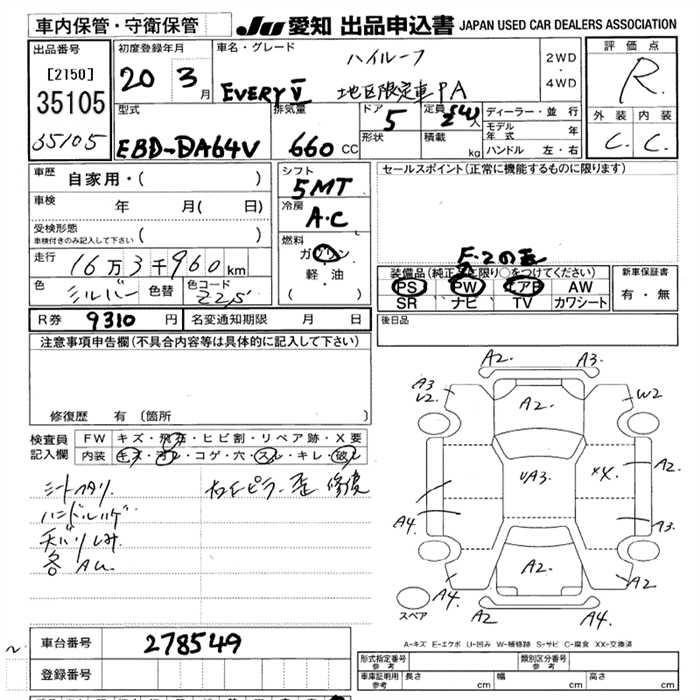 車内保管・守衛保管
JU 愛知 出品申込書 JAPAN USED CAR DEALERS ASSOCIATION
出品番号
[2150]
35105
35105
初度登録年月
20 3月
車名・グレード
ハイルーフ
EVERY V 地区限定車 PA
2WD
4WD
評価点
R
外装 内装
C. C.
型式
EBD-DA64V
排気量
660 CC
ドア
5
形状
定員
人
積載
kg
ディーラー・並行
モデル年式 年
ハンドル 左・右
車歴
自家用・( )
車検
年 月( 日)
受検形態
車検付きのみ記入して下さい ( )
走行
16万3千960km
色
シルバー
色替
色コード
Z2S
シフト
5MT
冷房
A.C
燃料
ガソリン
・
軽・油
( )
セールスポイント(正常に機能するものに限ります)
装備品(純正品に限り○をつけてください)
PS PW エアB AW
SR ナビ TV カワシート
新車保証書
有・無
R券 9310 円
名変通知期限 月 日
後日品
注意事項申告欄(不具合内容等は具体的に記入して下さい)
修復歴 有 〔箇所
検査員記入欄
FW キズ・飛石・ヒビ割・リペア跡・X要
内装 キズ・汚レ・コゲ・穴・スレ・キレ・破レ
シートヘタリ
ハンドルハゲ
天バリしみ
各 AU.
右Cピラー 歪 修復
A2. A3.
A3
U2. A2. W2
A2.
UA3. XX.
A4. A3.
A2. A2
A4. A2 A4.
スペア
A-キズ E-エクボ U-凹み W-補修跡 S-サビ C-腐食 XX-交換済
車台番号 278549
登録番号
形式指定番号
参考
類別区分番号
参考
車庫証明用
参考
長さ cm 幅 cm 高さ cm